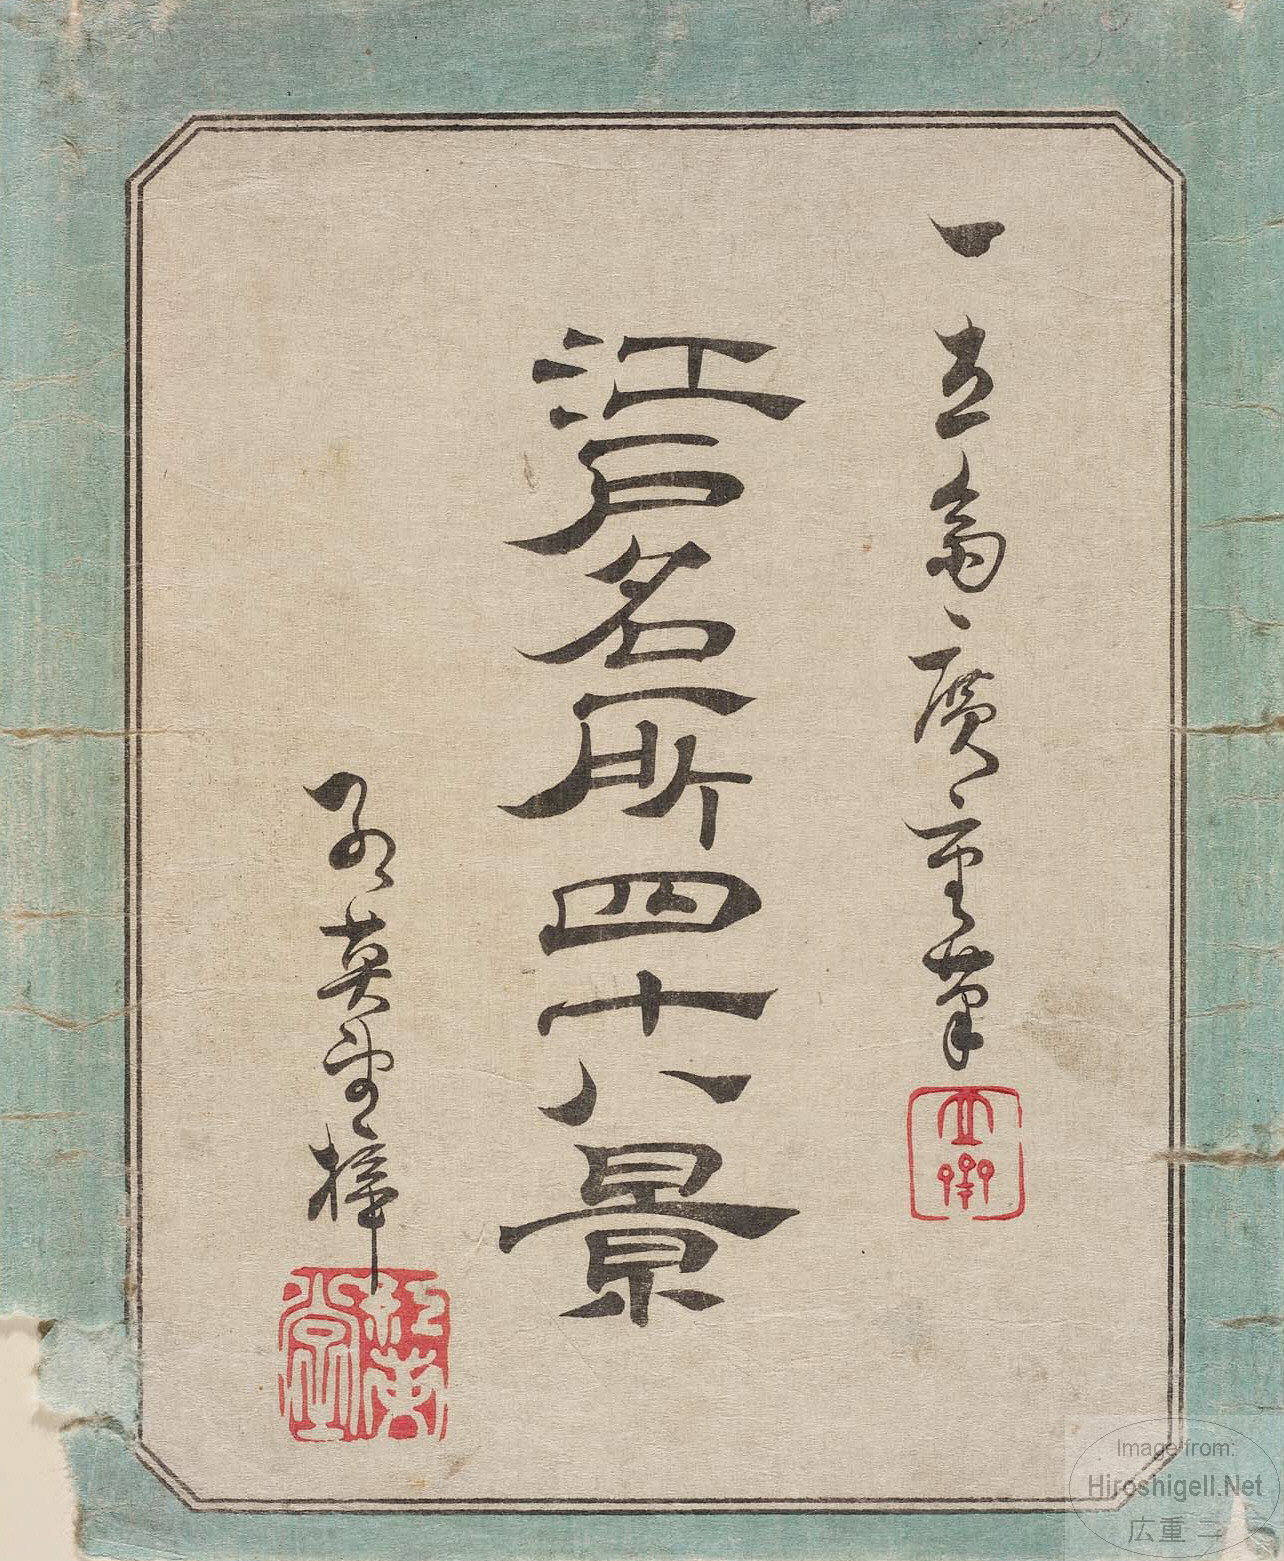 一立齋廣重筆
江戸名所四十八景
紅英堂梓
紅英堂
Image from:
HiroshigeII.Net
広重 二